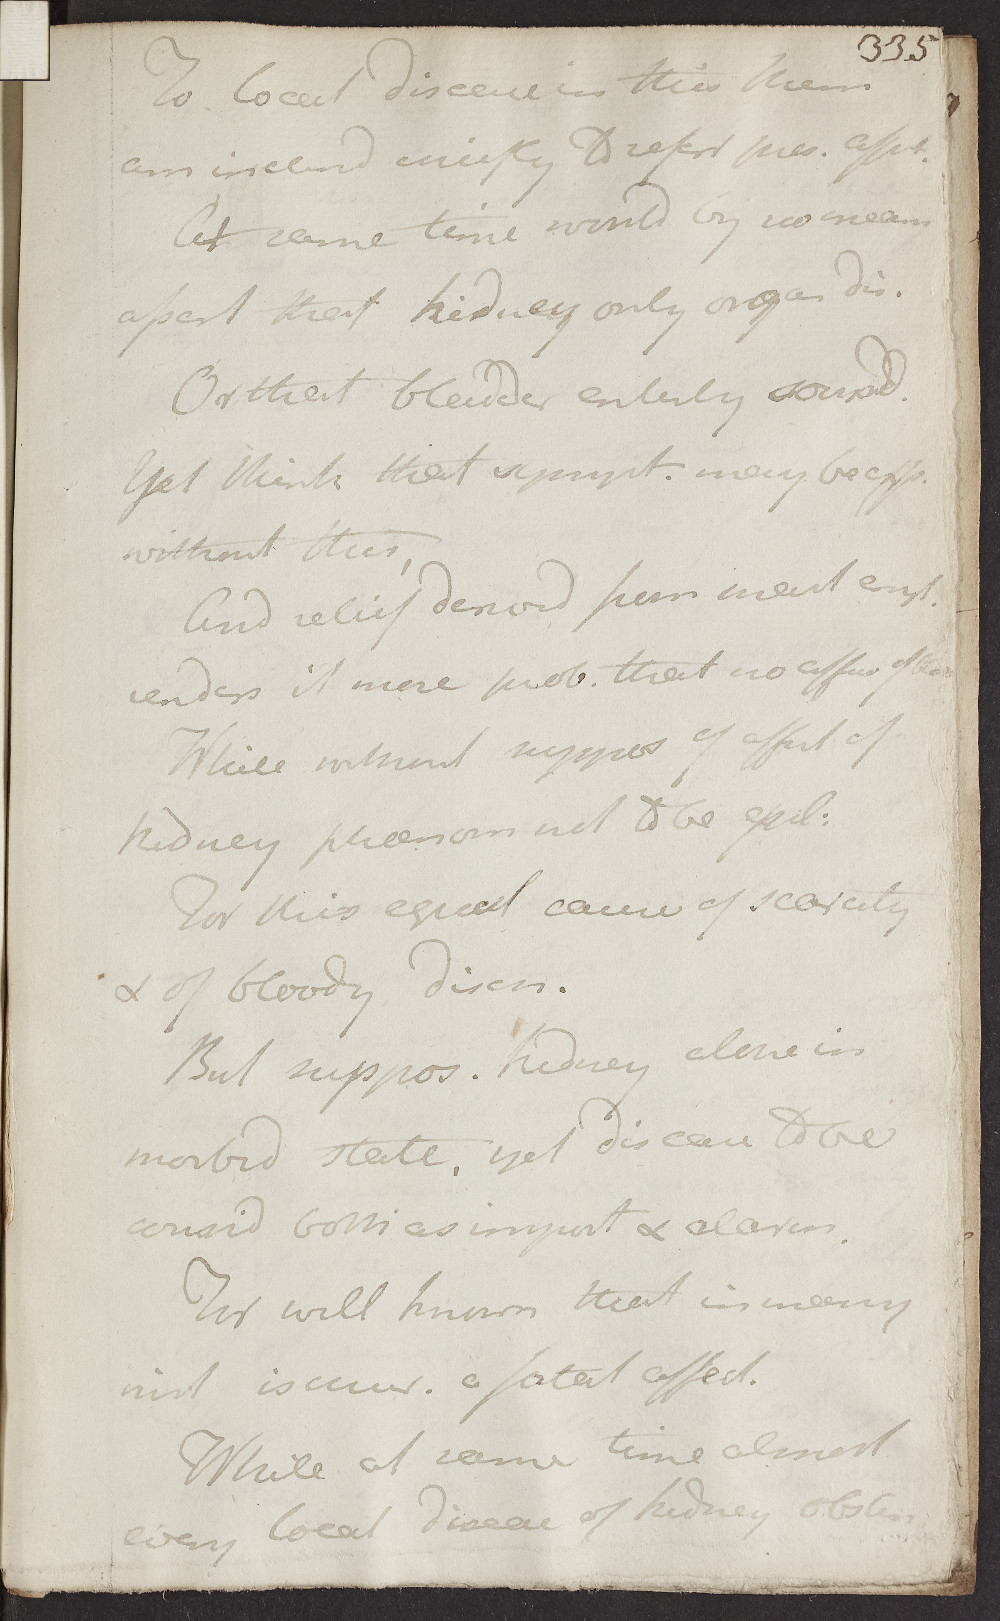 335
To local disease in this then
am inclind chiefly to refer pres. affect.
At same time would by no mean
assert that kidney only organ dis.
Or that bladder entirely sound.
Yet think that sympt. may be exp.
without this,
And relief derived from med empl.
renders it more prob. that no affec of blad
While without suppos of affect of
kidney phaenom not to be expl:
For this equal cause of scarcity
& of bloody disch.
But suppos. kidney alone in
morbid state, yet disease to be
consid both as import & alarm.
For well known that in many
inst incur. & fatal affect.
While at same time almost
every local disease of kidney obstin